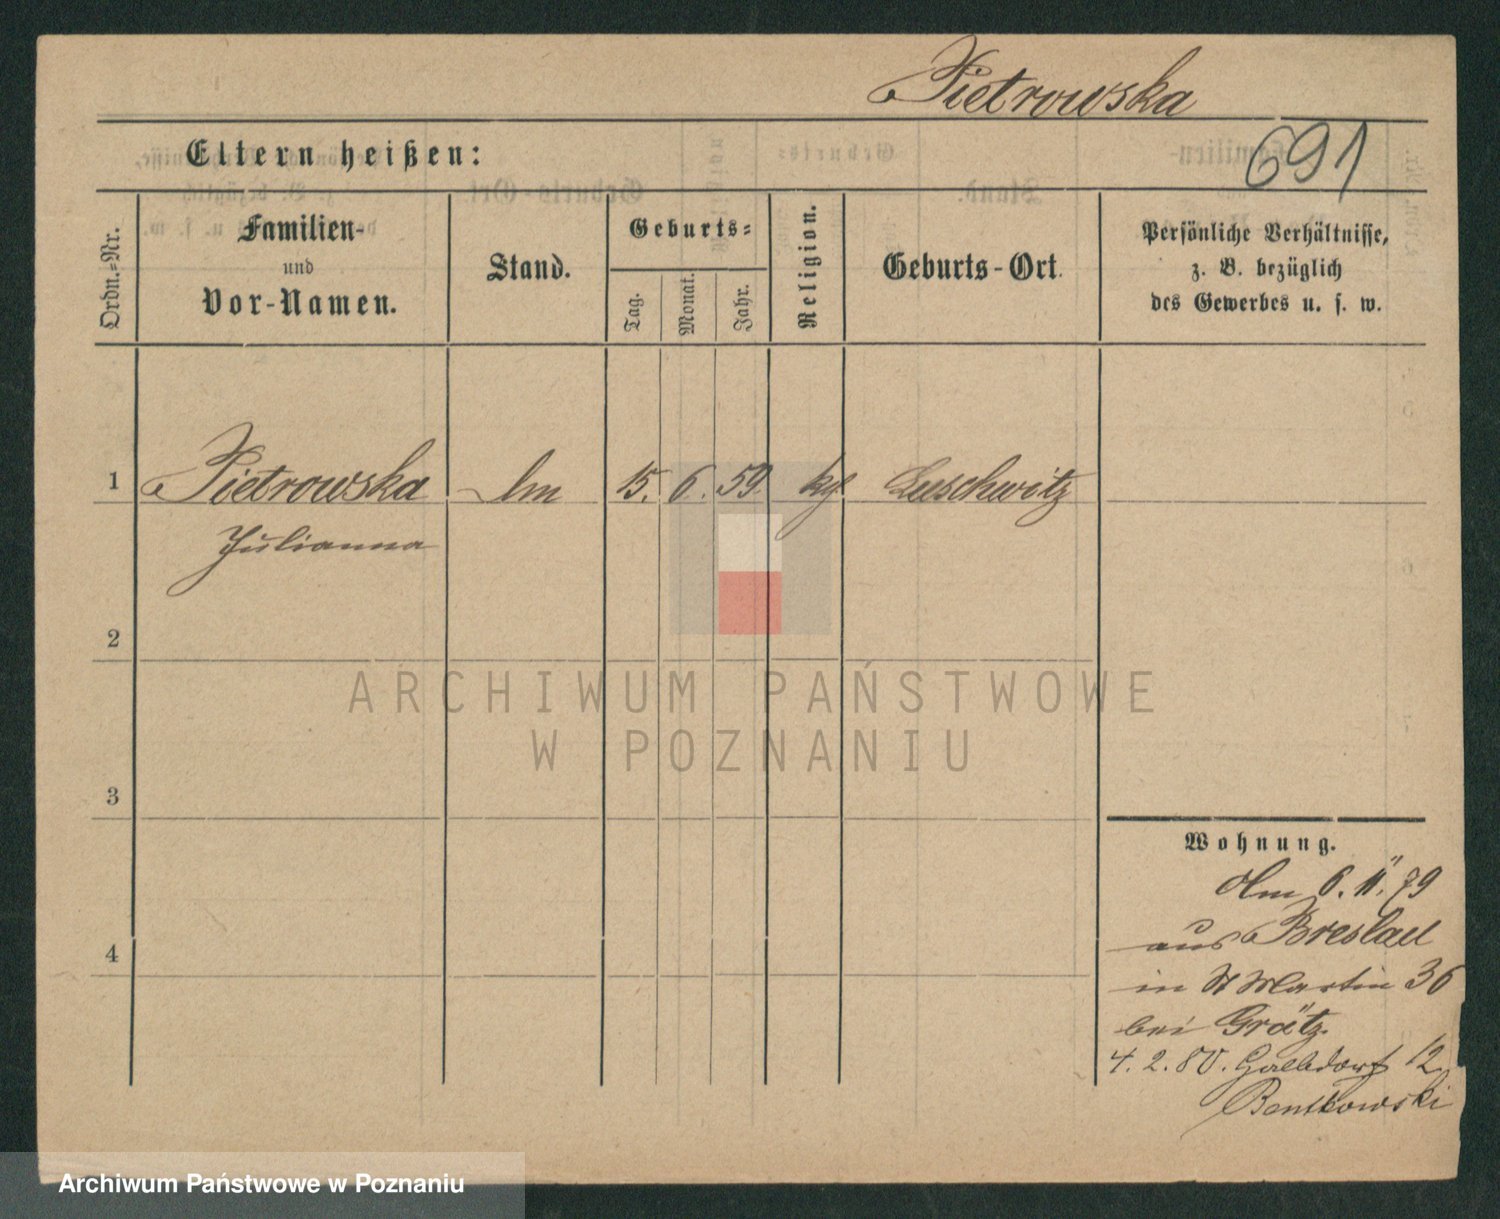 Pietrowska
691
Eltern heißen:
Ordn.-Nr.
Familien-
und
Vor-Namen.
Stand.
Geburts-
Tag.
Monat.
Jahr.
Religion.
Geburts-Ort.
Persönliche Verhältnisse,
z. B. bezüglich
des Gewerbes u. s. w.
1 Pietrowska 15. 6. 59. Luschwitz
Julianna
2
3
4
ARCHIWUM PAŃSTWOWE
W POZNANIU
Wohnung.
6. 11. 79
aus Breslau
in St Martin 36
bei Grätz.
4. 2. 80. 12.
Bentkowski
Archiwum Państwowe w Poznaniu